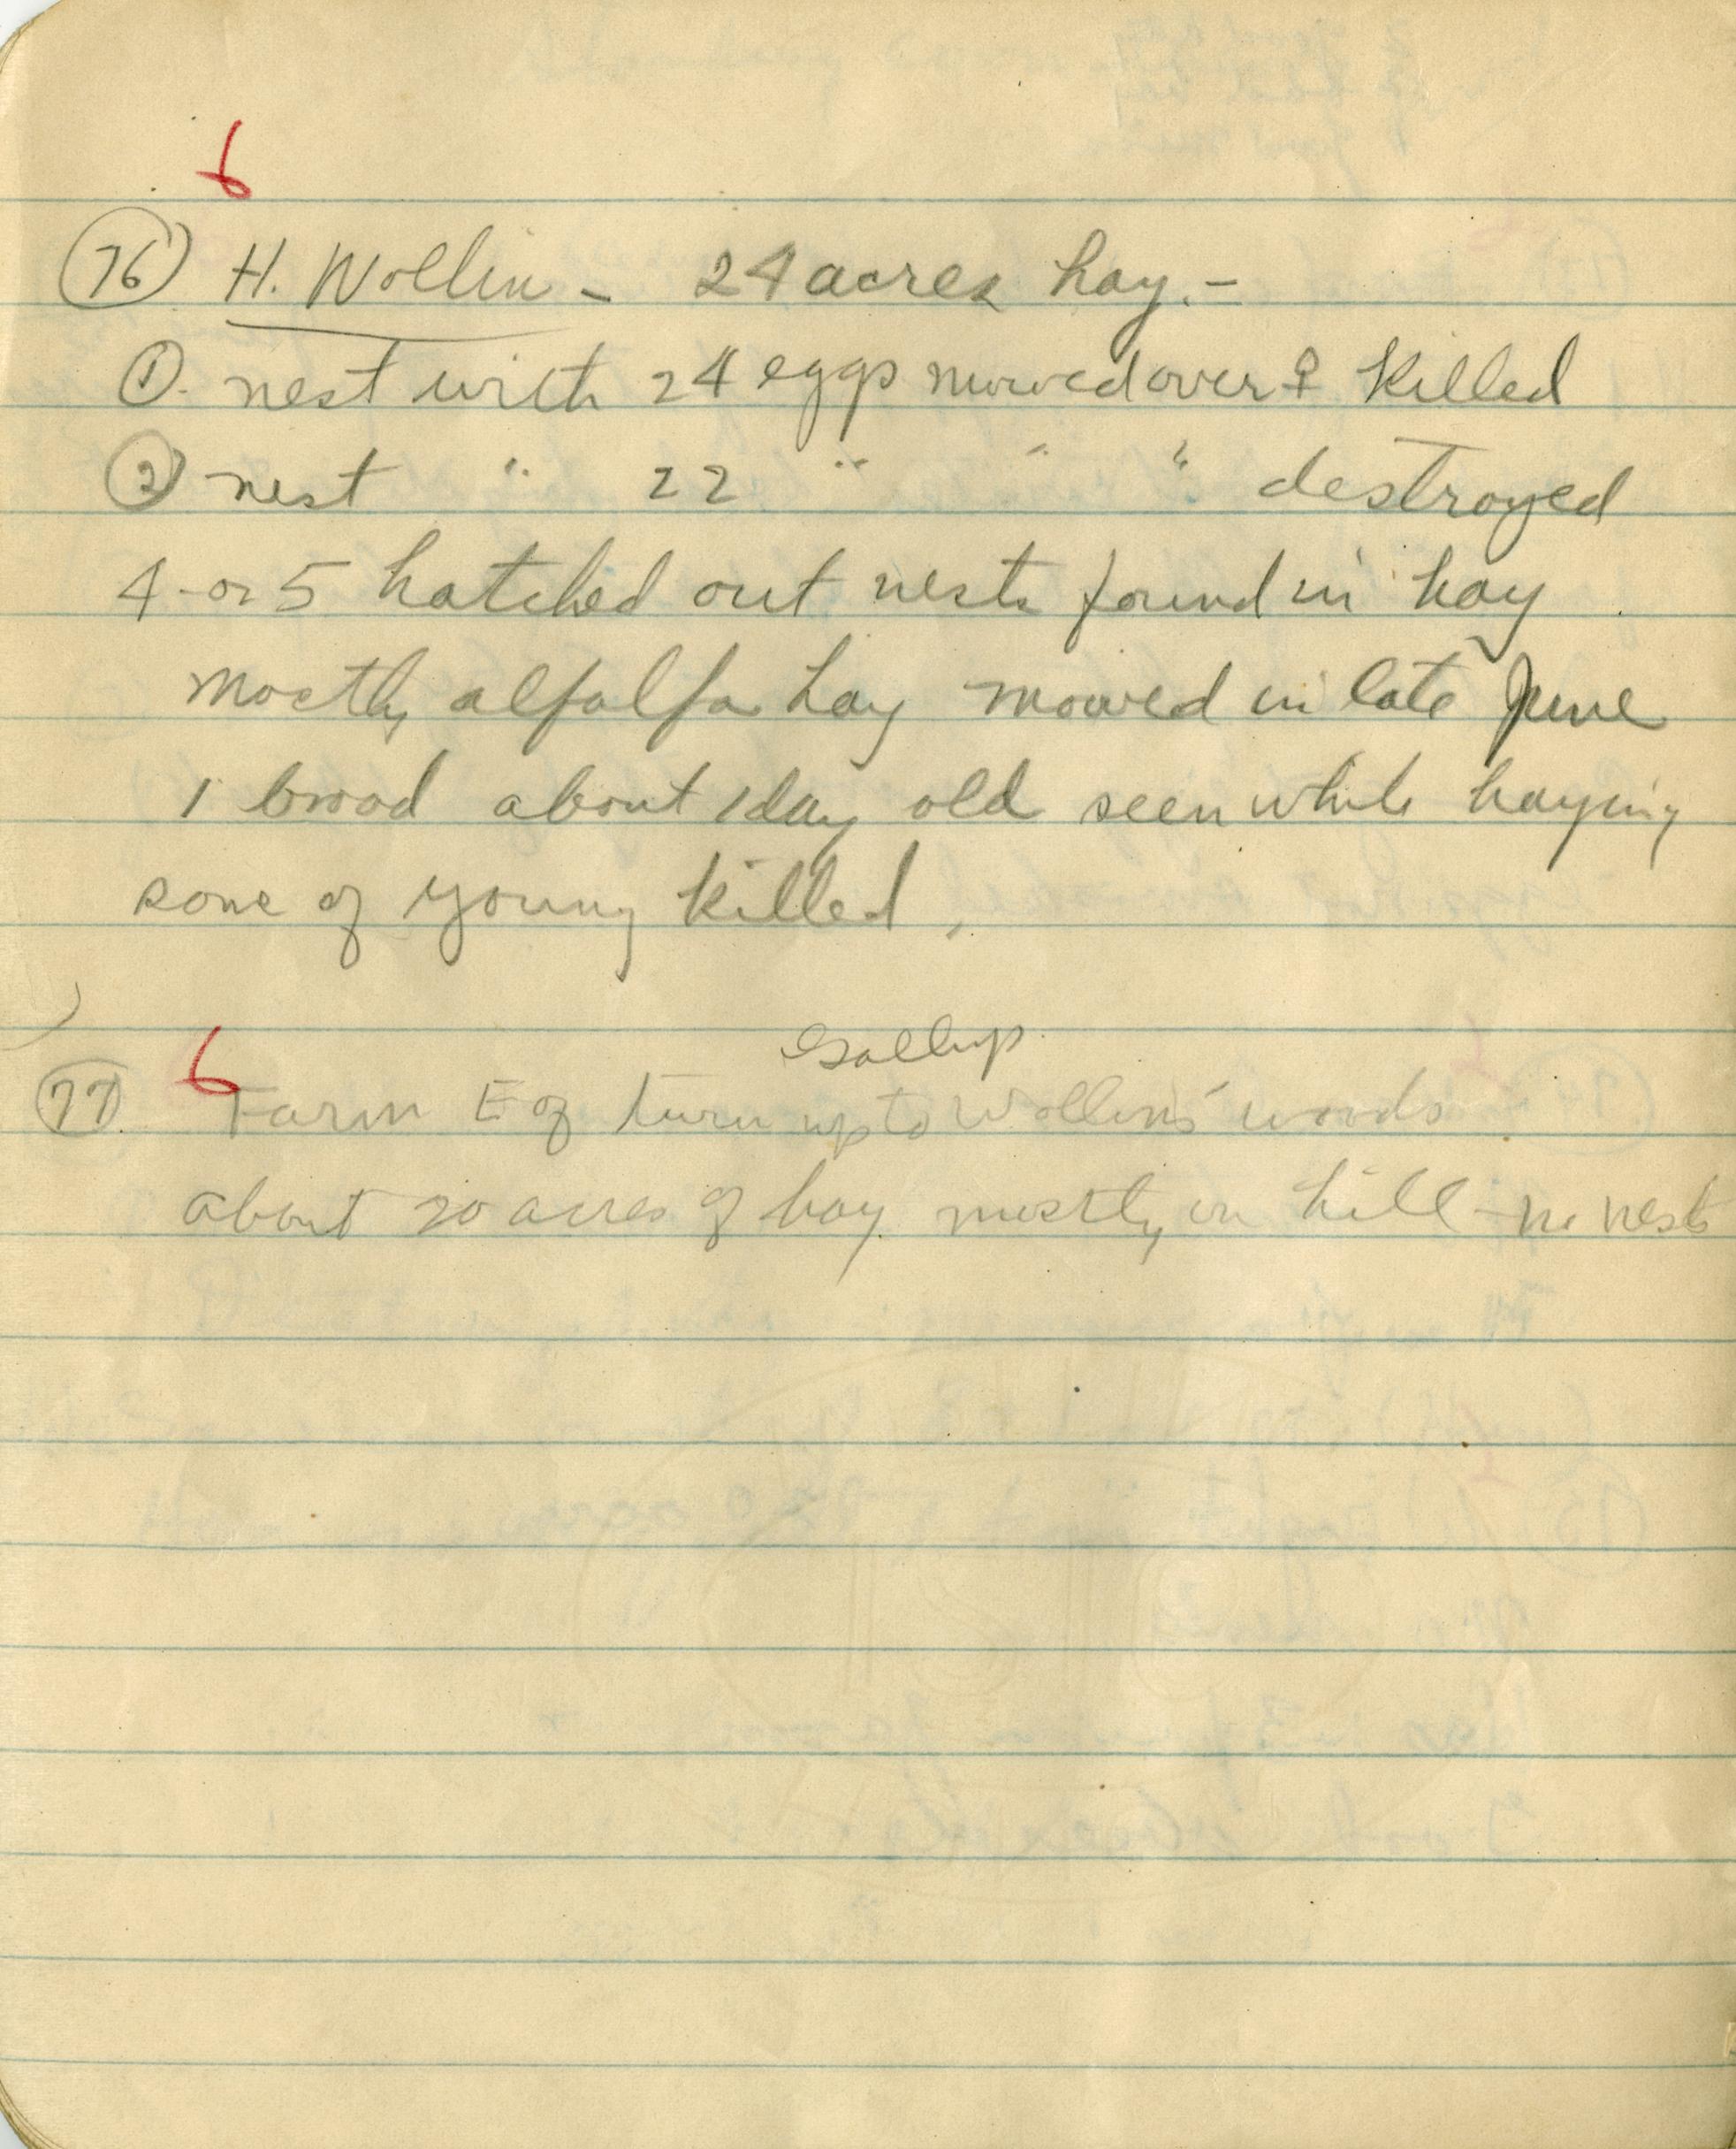 6
76 H. Wollin - 24 acres hay. -
1. nest with 24 eggs mowed over ♀ killed
2 nest " 22 " " " destroyed
4 or 5 hatched out nests found in hay
mostly alfalfa hay mowed in late June
1 brood about 1 day old seen while haying
some of young killed,
Gallup
77. 6 Farm E of turn up to Wollins' woods
about 20 acres of hay mostly on hill - no nests